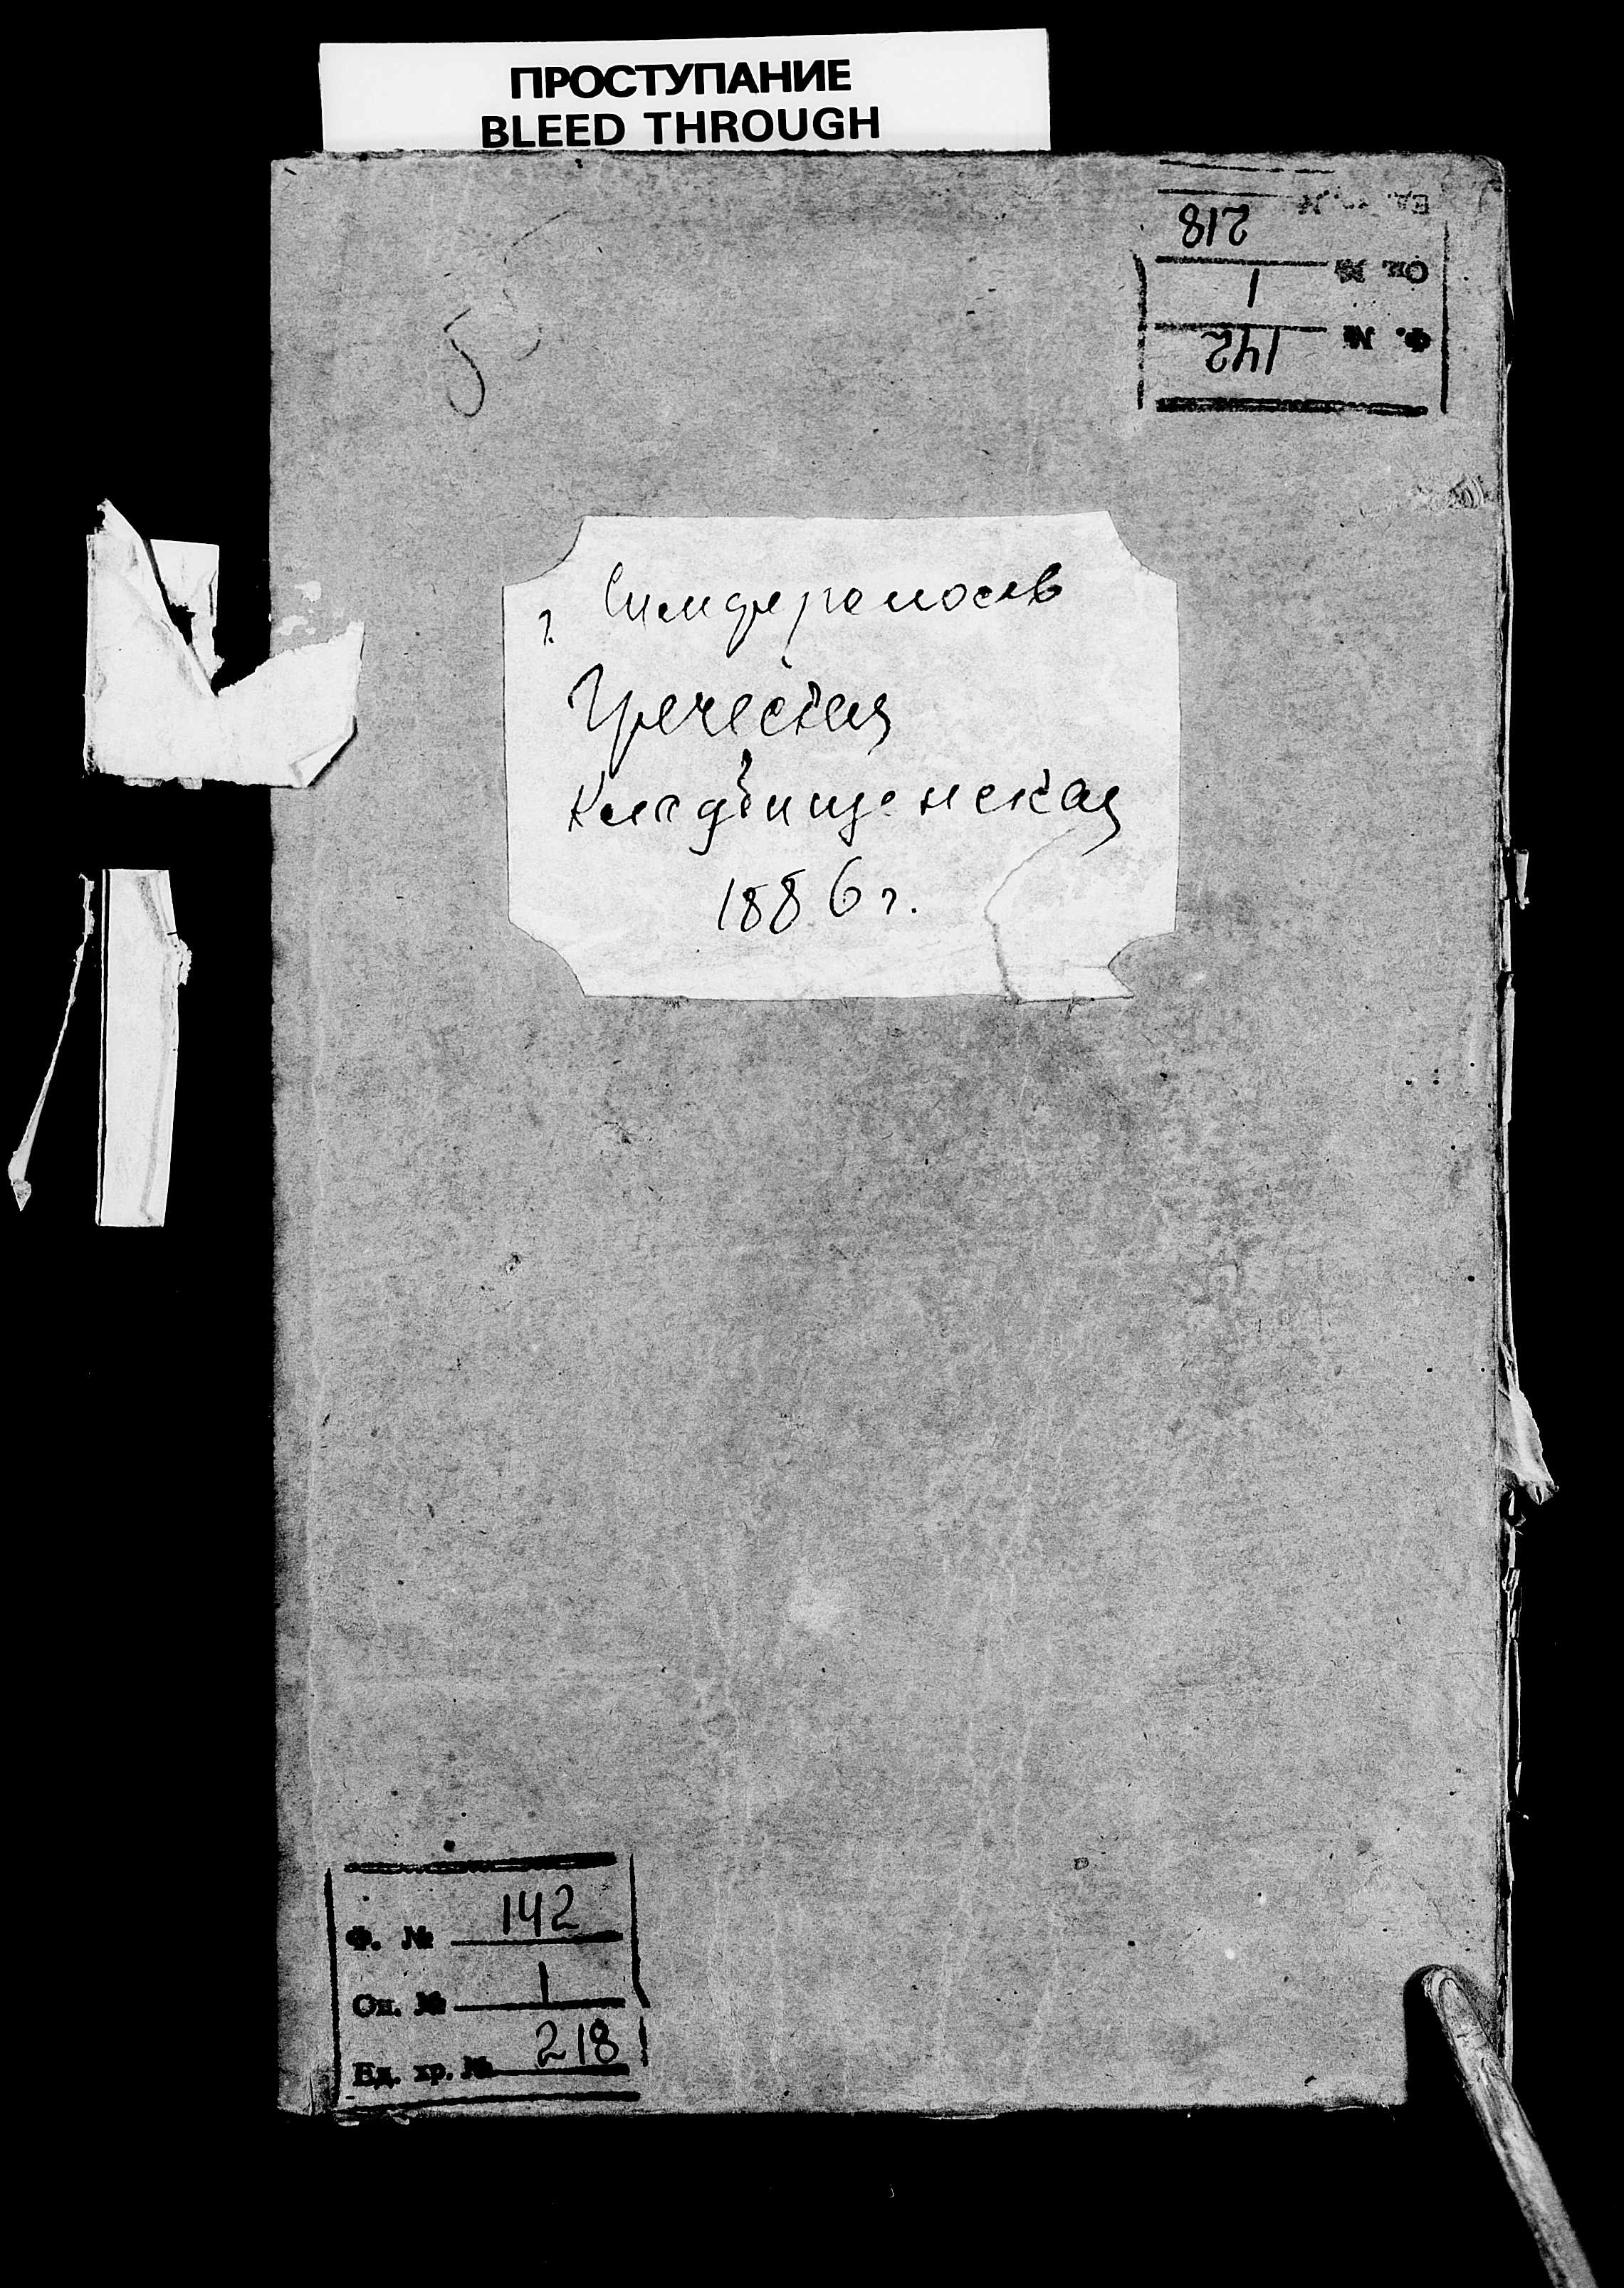 ПРОСТУПАНИЕ
BLEED THROUGH
Ед. хр. №
218
Оп. №
1
Ф. №
142
5
г. Симферополь
Греческая
Кладбищенская
1886 г.
Ф. № 142
Оп. № 1
Ед. хр. № 218